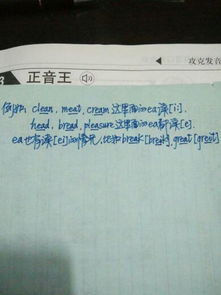 攻克发音
3 正音王
例如: clean, meat, cream 这里面的ea读[i:].
head, bread, pleasure 这里面的ea都读[e].
ea也有读[ei]的情况,比如break[breik],great[greit]